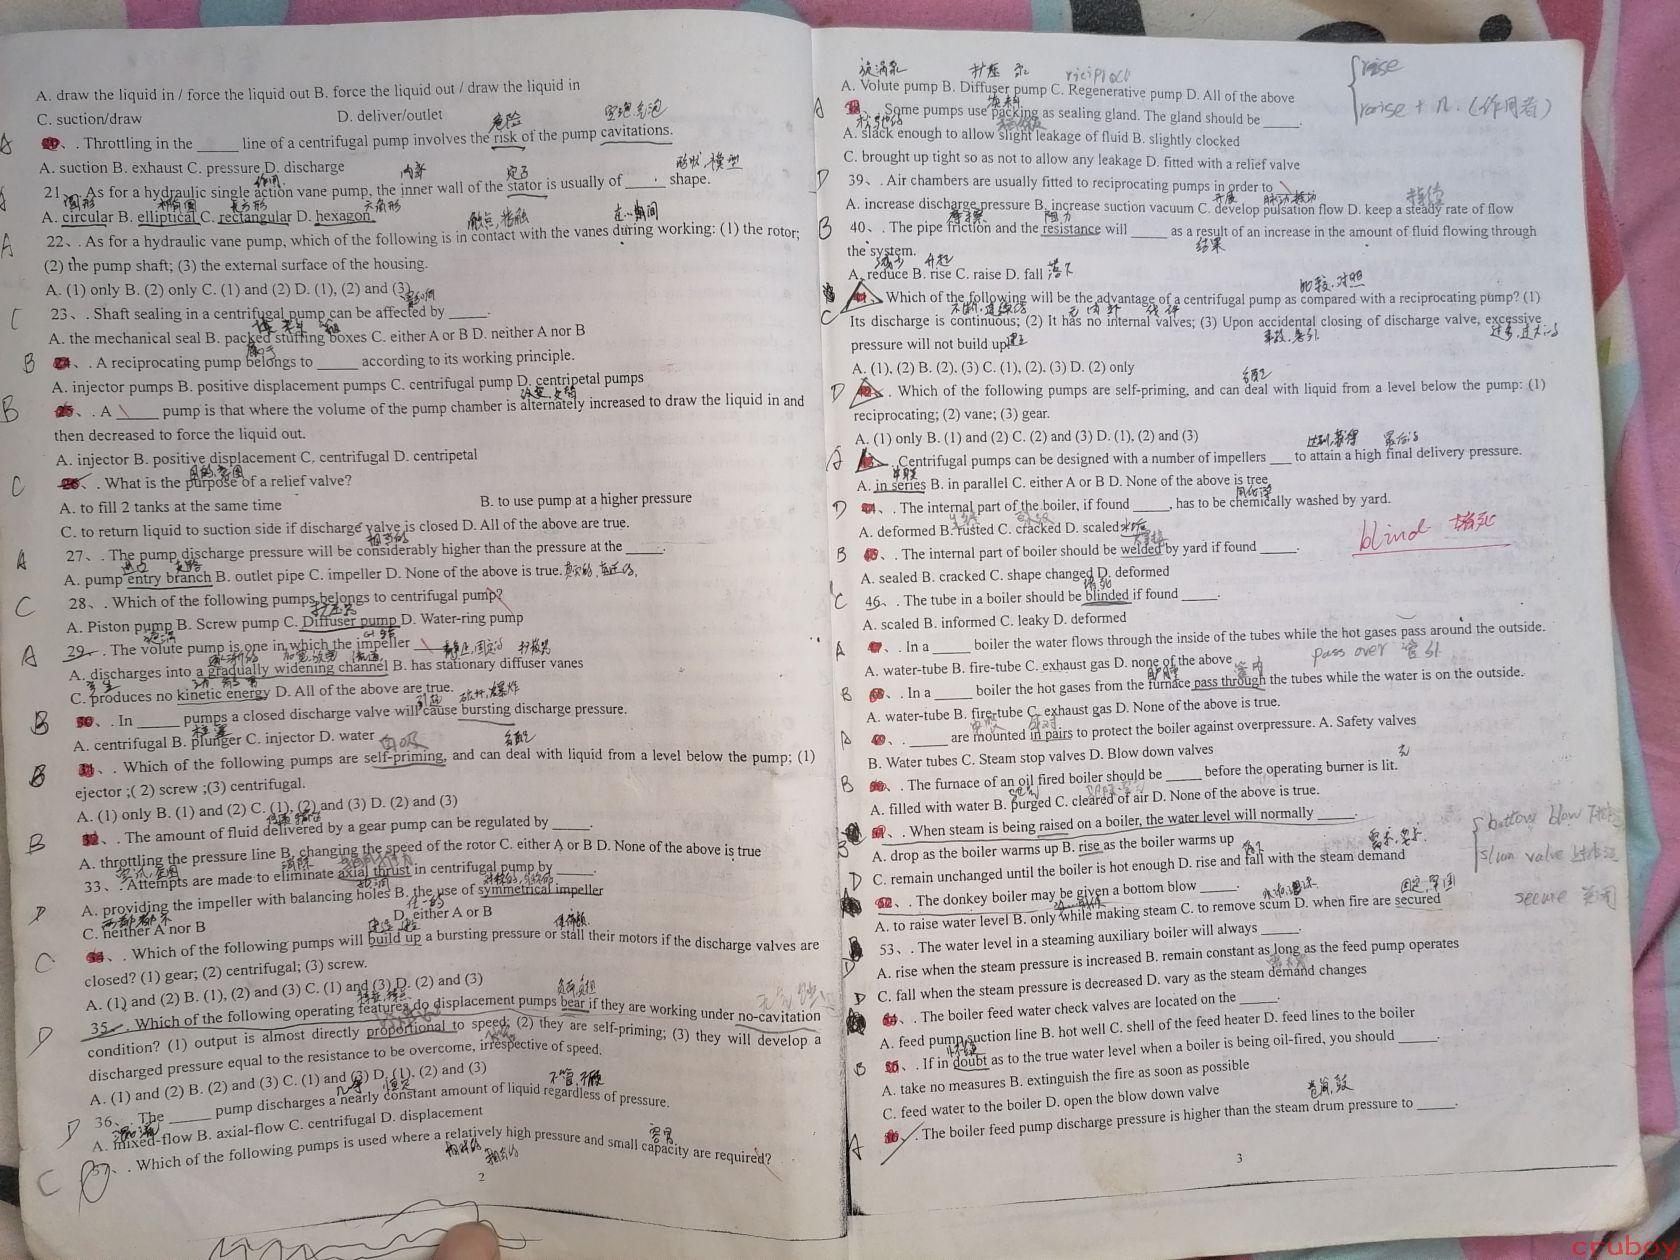 A. draw the liquid in / force the liquid out B. force the liquid out / draw the liquid in
C. suction/draw D. deliver/outlet
危险
A 20、. Throttling in the _____ line of a centrifugal pump involves the risk of the pump cavitations.
A. suction B. exhaust C. pressure D. discharge
内壁 定子 形状, 模型
21、. As for a hydraulic single action vane pump, the inner wall of the stator is usually of _____ shape.
圆形 椭圆 长方形 六角形
A. circular B. elliptical C. rectangular D. hexagon
触点, 接触
A 22、. As for a hydraulic vane pump, which of the following is in contact with the vanes during working: (1) the rotor;
(2) the pump shaft; (3) the external surface of the housing.
A. (1) only B. (2) only C. (1) and (2) D. (1), (2) and (3)
C 23、. Shaft sealing in a centrifugal pump can be affected by _____.
A. the mechanical seal B. packed stuffing boxes C. either A or B D. neither A nor B
属于
B 24、. A reciprocating pump belongs to _____ according to its working principle.
A. injector pumps B. positive displacement pumps C. centrifugal pump D. centripetal pumps
B 25、. A _____ pump is that where the volume of the pump chamber is alternately increased to draw the liquid in and
then decreased to force the liquid out.
A. injector B. positive displacement C. centrifugal D. centripetal
目的, 意图
C 26、. What is the purpose of a relief valve?
A. to fill 2 tanks at the same time B. to use pump at a higher pressure
C. to return liquid to suction side if discharge valve is closed D. All of the above are true.
相当的
A 27、. The pump discharge pressure will be considerably higher than the pressure at the _____.
A. pump entry branch B. outlet pipe C. impeller D. None of the above is true.
C 28、. Which of the following pumps belongs to centrifugal pump?
扩压泵
A. Piston pump B. Screw pump C. Diffuser pump D. Water-ring pump
A 29、. The volute pump is one in which the impeller
A. discharges into a gradually widening channel B. has stationary diffuser vanes
产生
C. produces no kinetic energy D. All of the above are true.
B 30、. In _____ pumps a closed discharge valve will cause bursting discharge pressure.
柱塞
A. centrifugal B. plunger C. injector D. water
自吸
B 31、. Which of the following pumps are self-priming, and can deal with liquid from a level below the pump; (1)
ejector ;( 2) screw ;(3) centrifugal.
A. (1) only B. (1) and (2) C. (1), (2) and (3) D. (2) and (3)
B 32、. The amount of fluid delivered by a gear pump can be regulated by _____.
A. throttling the pressure line B. changing the speed of the rotor C. either A or B D. None of the above is true
消除
33、. Attempts are made to eliminate axial thrust in centrifugal pump by _____.
D A. providing the impeller with balancing holes B. the use of symmetrical impeller
C. neither A nor B D. either A or B
C 34、. Which of the following pumps will build up a bursting pressure or stall their motors if the discharge valves are
closed? (1) gear; (2) centrifugal; (3) screw.
A. (1) and (2) B. (1), (2) and (3) C. (1) and (3) D. (2) and (3)
D 35、. Which of the following operating features do displacement pumps bear if they are working under no-cavitation
condition? (1) output is almost directly proportional to speed; (2) they are self-priming; (3) they will develop a
discharged pressure equal to the resistance to be overcome, irrespective of speed.
A. (1) and (2) B. (2) and (3) C. (1) and (3) D. (1), (2) and (3)
几乎 恒定 不管, 不顾
D 36、. The _____ pump discharges a nearly constant amount of liquid regardless of pressure.
混流
A. mixed-flow B. axial-flow C. centrifugal D. displacement
容量
C 37、. Which of the following pumps is used where a relatively high pressure and small capacity are required?
2
旋涡泵 扩压泵
A. Volute pump B. Diffuser pump C. Regenerative pump D. All of the above
rise
raise + n. (作用者)
A 38、. Some pumps use packing as sealing gland. The gland should be _____.
A. slack enough to allow slight leakage of fluid B. slightly clocked
C. brought up tight so as not to allow any leakage D. fitted with a relief valve
D 39、. Air chambers are usually fitted to reciprocating pumps in order to
A. increase discharge pressure B. increase suction vacuum C. develop pulsation flow D. keep a steady rate of flow
摩擦 阻力
B 40、. The pipe friction and the resistance will _____ as a result of an increase in the amount of fluid flowing through
the system. 结果
减少 升起
A. reduce B. rise C. raise D. fall 落下
比较, 对照
C 41、. Which of the following will be the advantage of a centrifugal pump as compared with a reciprocating pump? (1)
Its discharge is continuous; (2) It has no internal valves; (3) Upon accidental closing of discharge valve, excessive
pressure will not build up.
A. (1), (2) B. (2), (3) C. (1), (2). (3) D. (2) only
D 42、. Which of the following pumps are self-priming, and can deal with liquid from a level below the pump: (1)
reciprocating; (2) vane; (3) gear.
A. (1) only B. (1) and (2) C. (2) and (3) D. (1), (2) and (3)
达到, 获得 最后的
A 43、. Centrifugal pumps can be designed with a number of impellers ___ to attain a high final delivery pressure.
串联
A. in series B. in parallel C. either A or B D. None of the above is tree
用化学
D 44、. The internal part of the boiler, if found _____, has to be chemically washed by yard.
A. deformed B. rusted C. cracked D. scaled 水垢
blind 堵死
B 45、. The internal part of boiler should be welded by yard if found _____.
A. sealed B. cracked C. shape changed D. deformed
堵死
C 46、. The tube in a boiler should be blinded if found _____.
A. scaled B. informed C. leaky D. deformed
A 47、. In a _____ boiler the water flows through the inside of the tubes while the hot gases pass around the outside.
pass over 管外
A. water-tube B. fire-tube C. exhaust gas D. none of the above
管内
B 48、. In a _____ boiler the hot gases from the furnace pass through the tubes while the water is on the outside.
A. water-tube B. fire-tube C. exhaust gas D. None of the above is true.
A 49、. _____ are mounted in pairs to protect the boiler against overpressure. A. Safety valves
B. Water tubes C. Steam stop valves D. Blow down valves
B 50、. The furnace of an oil fired boiler should be _____ before the operating burner is lit.
A. filled with water B. purged C. cleared of air D. None of the above is true.
bottom blow
B 51、. When steam is being raised on a boiler, the water level will normally _____.
A. drop as the boiler warms up B. rise as the boiler warms up
C. remain unchanged until the boiler is hot enough D. rise and fall with the steam demand
需求, 要求
D 52、. The donkey boiler may be given a bottom blow _____.
固定, 牢固
A. to raise water level B. only while making steam C. to remove scum D. when fire are secured
secure 关闭
53、. The water level in a steaming auxiliary boiler will always _____.
D A. rise when the steam pressure is increased B. remain constant as long as the feed pump operates
C. fall when the steam pressure is decreased D. vary as the steam demand changes
D 54、. The boiler feed water check valves are located on the _____.
A. feed pump suction line B. hot well C. shell of the feed heater D. feed lines to the boiler
怀疑
B 55、. If in doubt as to the true water level when a boiler is being oil-fired, you should _____.
A. take no measures B. extinguish the fire as soon as possible
C. feed water to the boiler D. open the blow down valve
A 56、. The boiler feed pump discharge pressure is higher than the steam drum pressure to _____.
3
cruboy